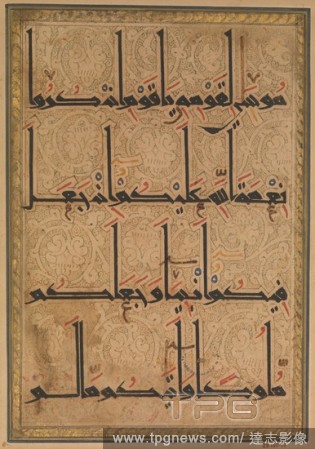 موسى لقومه ياقوم اذكروا
نعمة الله عليكم اذ جعل
فيكم انبيا وجعلكم
ملوكا واتيكم ما لم
TPG
www.tpgnews.com/ 達志影像